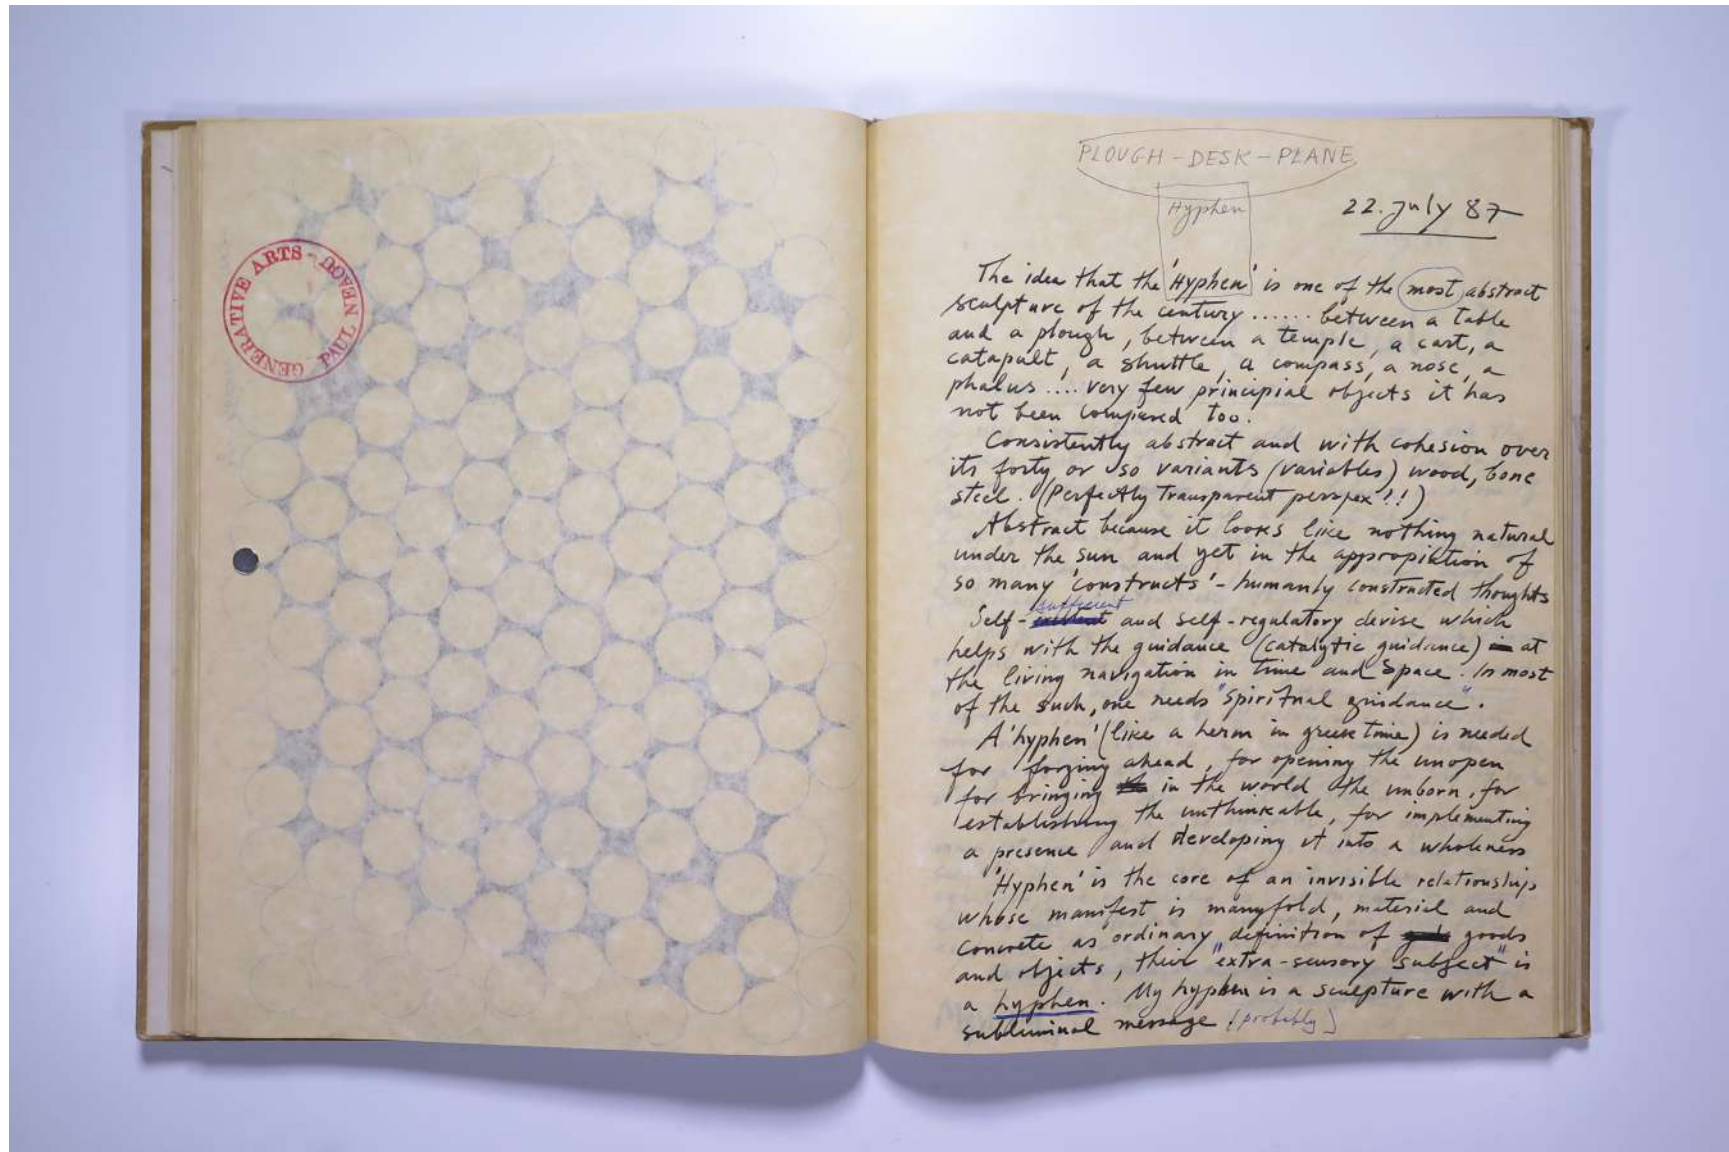 GENERATIVE ARTS - PAUL NEAGU
PLOUGH - DESK - PLANE
Hyphen
22. July 87
The idea that the 'Hyphen' is one of the most abstract
sculpture of the century ...... between a table
and a plough, between a temple, a cart, a
catapult, a shuttle, a compass, a nose, a
phalus .... very few principial objects it has
not been compared too.
Consistently abstract and with cohesion over
its forty or so variants (variables) wood, bone
steel. (Perfectly Transparent perspex!!)
Abstract because it looks like nothing natural
under the sun and yet in the appropiation of
so many 'constructs' - humanly constructed thoughts
sufficient
Self- and self-regulatory devise which
helps with the guidance (catalytic guidance) at
the living navigation in time and space. In most
of the such, one needs "spiritual guidance".
A 'hyphen' (like a herm in greek time) is needed
for forging ahead, for opening the unopen
for bringing in the world the unborn, for
establishing the unthinkable, for implementing
a presence and developing it into a wholeness
'Hyphen' is the core of an invisible relationship
whose manifest is manyfold, material and
concrete as ordinary definition of goods
and objects, their "extra-sensory subject" is
a hyphen. My hyphen is a sculpture with a
subliminal message (probably)